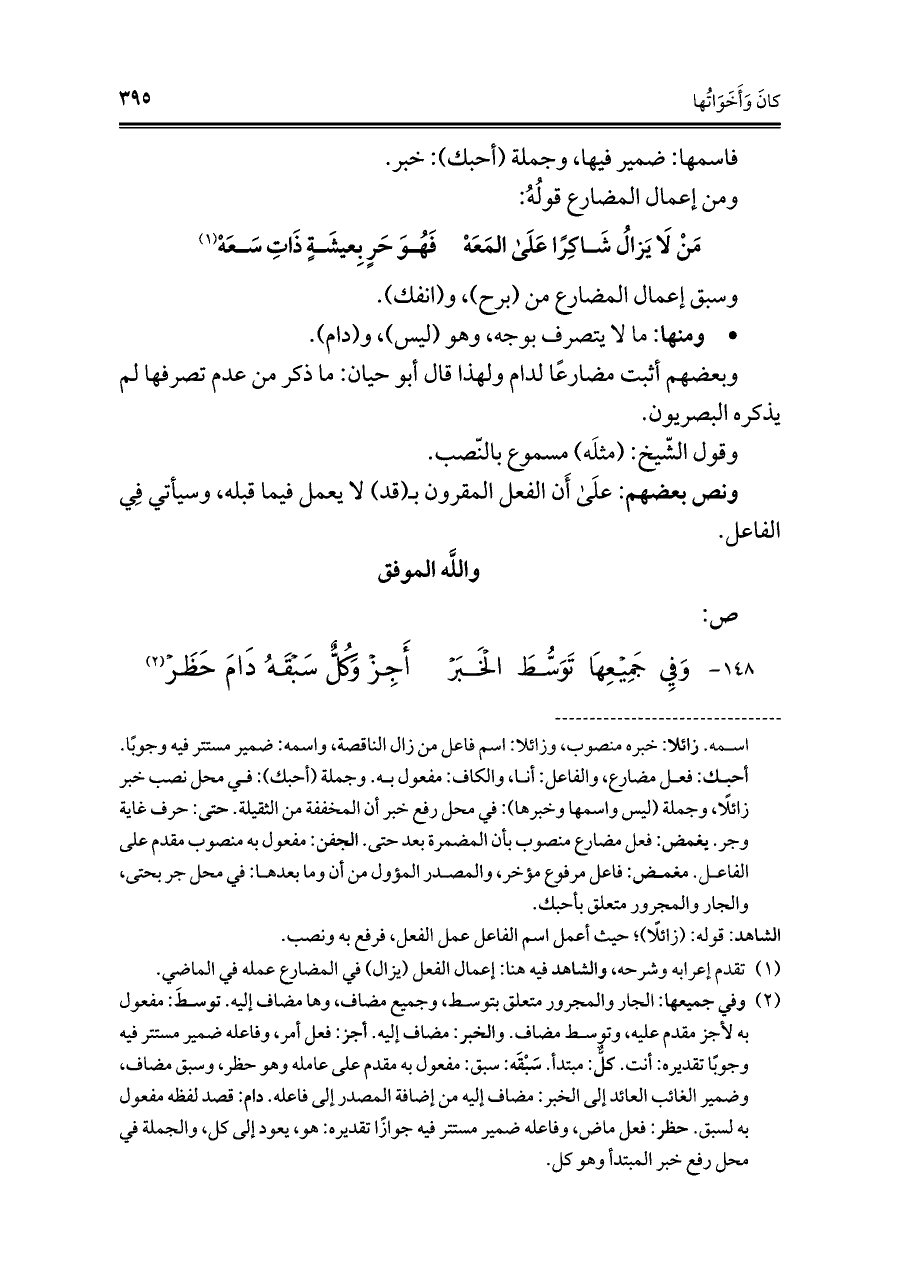 كانَ وَأَخَوَاتُها ٣٩٥
فاسمها: ضمير فيها، وجملة (أحبك): خبر.
ومن إعمال المضارع قولُهُ:
مَنْ لَا يَزالُ شَـاكِرًا عَلَىٰ المَعَهْ فَهْـوَ حَرٍ بِعيشَـةٍ ذَاتِ سَـعَهْ(١)
وسبق إعمال المضارع من (برح)، و(انفك).
• ومنها: ما لا يتصرف بوجه، وهو (ليس)، و(دام).
وبعضهم أثبت مضارعًا لدام ولهذا قال أبو حيان: ما ذكر من عدم تصرفها لم
يذكره البصريون.
وقول الشّيخ: (مثلَه) مسموع بالنّصب.
ونص بعضهم: علَىٰ أَن الفعل المقرون بـ(قد) لا يعمل فيما قبله، وسيأتي فِي
الفاعل.
واللَّه الموفق
ص:
١٤٨- وَفِي جَمِيْعِهَا تَوَسُّـطَ الْخَـبَرْ أَجِـزْ وَكُلٌّ سَـبْقَـهُ دَامَ حَظَـرْ(٢)
اسـمه. زائلا: خبره منصوب، وزائلا: اسم فاعل من زال الناقصة، واسمه: ضمير مستتر فيه وجوبًا.
أحبـك: فعـل مضارع، والفاعل: أنـا، والكاف: مفعول بـه. وجملة (أحبك): فـي محل نصب خبر
زائلًا، وجملة (ليس واسمها وخبرها): في محل رفع خبر أن المخففة من الثقيلة. حتى: حرف غاية
وجر. يغمض: فعل مضارع منصوب بأن المضمرة بعد حتى. الجفن: مفعول به منصوب مقدم على
الفاعـل. مغمـض: فاعل مرفوع مؤخر، والمصـدر المؤول من أن وما بعدهـا: في محل جر بحتى،
والجار والمجرور متعلق بأحبك.
الشاهد: قوله: (زائلًا)؛ حيث أعمل اسم الفاعل عمل الفعل، فرفع به ونصب.
(١) تقدم إعرابه وشرحه، والشاهد فيه هنا: إعمال الفعل (يزال) في المضارع عمله في الماضي.
(٢) وفي جميعها: الجار والمجرور متعلق بتوسـط، وجميع مضاف، وها مضاف إليه. توسـطَ: مفعول
به لأجز مقدم عليه، وتوسـط مضاف. والخبر: مضاف إليه. أجز: فعل أمر، وفاعله ضمير مستتر فيه
وجوبًا تقديره: أنت. كلٌّ: مبتدأ. سَبْقَه: سبق: مفعول به مقدم على عامله وهو حظر، وسبق مضاف،
وضمير الغائب العائد إلى الخبر: مضاف إليه من إضافة المصدر إلى فاعله. دام: قصد لفظه مفعول
به لسبق. حظر: فعل ماض، وفاعله ضمير مستتر فيه جوازًا تقديره: هو، يعود إلى كل، والجملة في
محل رفع خبر المبتدأ وهو كل.